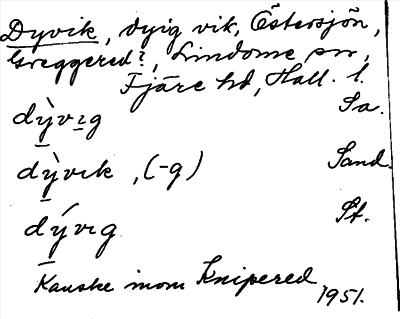 Dyvik, dyig vik, Östersjön,
Greggered?, Lindome sn,
Fjäre hd, Hall. l.
dỳ̱vɪg Sa.
dỳ̱vɪk, (-g) Sand.
dý̱vɪg St.
Kanske inom Knipered
1951.